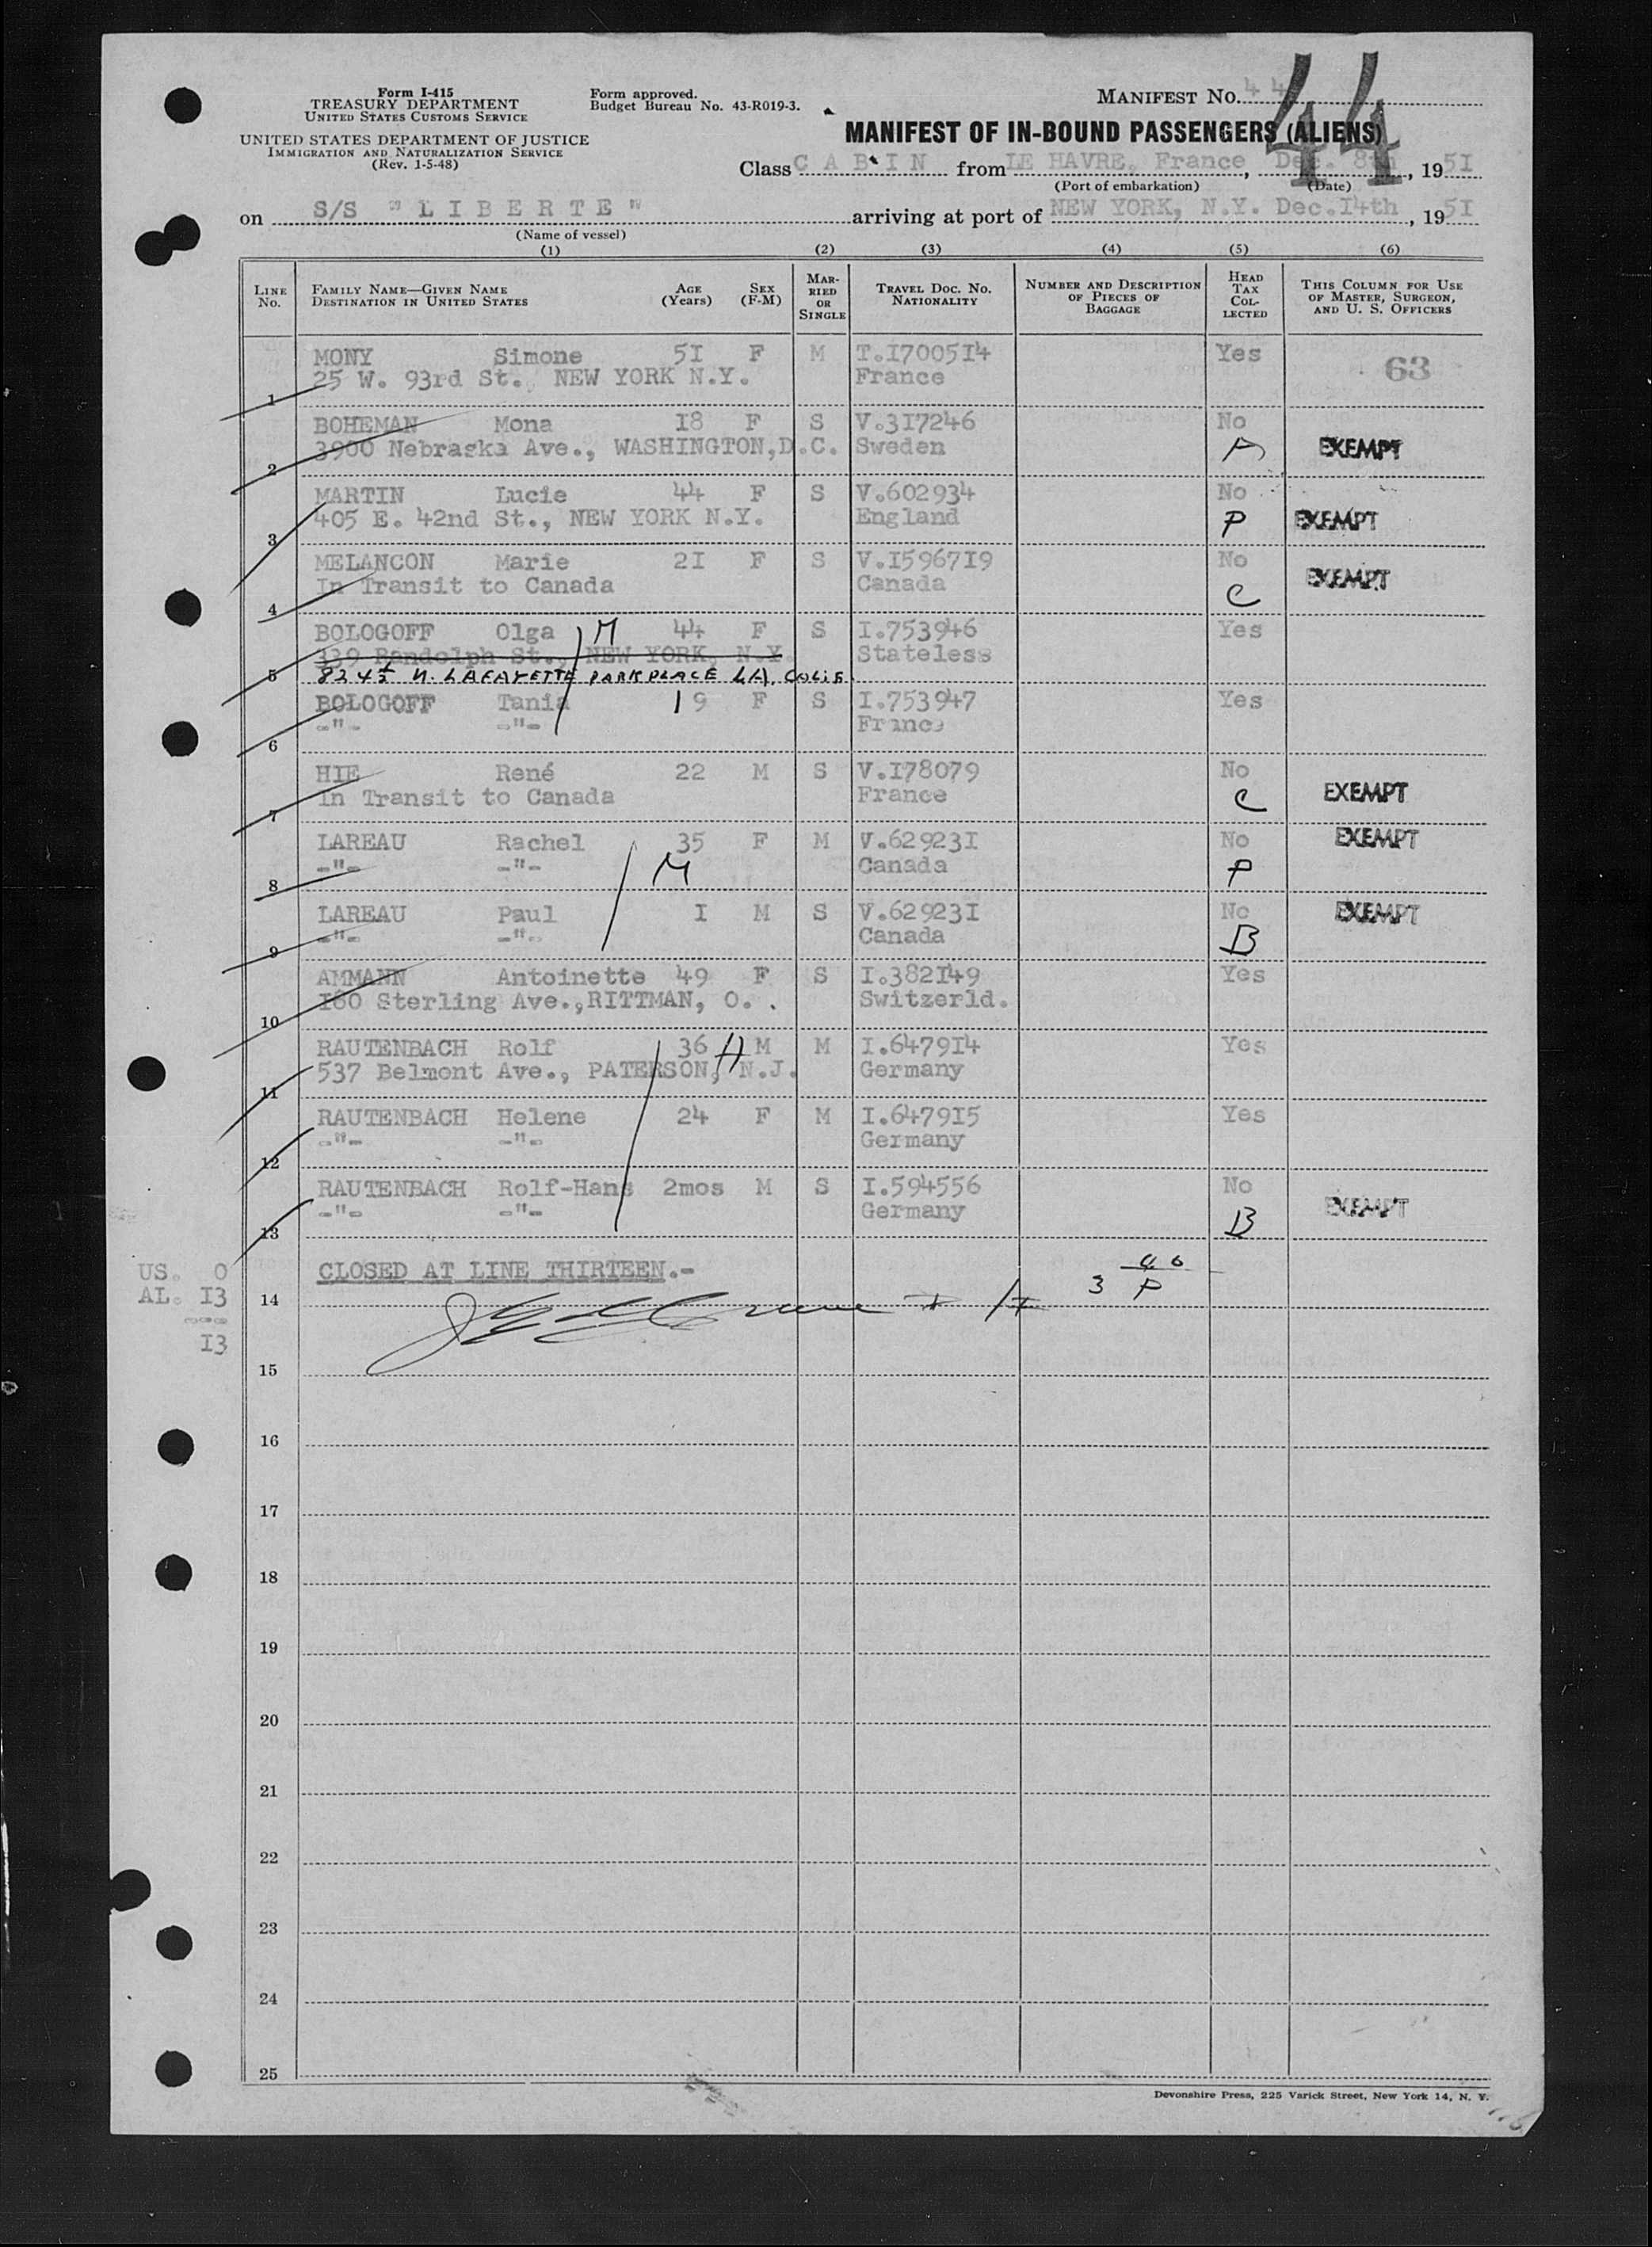 Form I-415
TREASURY DEPARTMENT
UNITED STATES CUSTOMS SERVICE
UNITED STATES DEPARTMENT OF JUSTICE
IMMIGRATION AND NATURALIZATION SERVICE
(Rev. 1-5-48)
Form approved.
Budget Bureau No. 43-R019-3.
MANIFEST NO. 44
44
MANIFEST OF IN-BOUND PASSENGERS (ALIENS)
Class C A B I N from LE HAVRE, France, Dec. 8th, 1951
(Port of embarkation) (Date)
on S/S "L I B E R T E" arriving at port of NEW YORK, N.Y. Dec.14th, 1951
(Name of vessel)
(1) (2) (3) (4) (5) (6)
LINE No. FAMILY NAME—GIVEN NAME DESTINATION IN UNITED STATES AGE (Years) SEX (F-M) MARRIED OR SINGLE TRAVEL DOC. NO. NATIONALITY NUMBER AND DESCRIPTION OF PIECES OF BAGGAGE HEAD TAX COLLECTED THIS COLUMN FOR USE OF MASTER, SURGEON, AND U. S. OFFICERS
MONY Simone 51 F M T.1700514 Yes 63
1 25 W. 93rd St., NEW YORK N.Y. France
BOHEMAN Mona 18 F S V.317246 No
2 3900 Nebraska Ave., WASHINGTON,D.C. Sweden A EXEMPT
MARTIN Lucie 44 F S V.602934 No
3 405 E. 42nd St., NEW YORK N.Y. England P EXEMPT
MELANCON Marie 21 F S V.1596719 No EXEMPT
4 In Transit to Canada Canada C
BOLOGOFF Olga M 44 F S I.753946 Yes
339 Randolph St., NEW YORK, N.Y. Stateless
5 824½ N. LAFAYETTE PARK PLACE LA, CALIF.
BOLOGOFF Tania 19 F S I.753947 Yes
6 -"- -"- France
HIE René 22 M S V.178079 No
7 In Transit to Canada France C EXEMPT
LAREAU Rachel 35 F M V.629231 No EXEMPT
8 -"- -"- M Canada P
LAREAU Paul 1 M S V.629231 No EXEMPT
9 -"- -"- Canada B
AMMANN Antoinette 49 F S I.382149 Yes
10 180 Sterling Ave.,RITTMAN, O.. Switzerld.
RAUTENBACH Rolf 36 H M M I.647914 Yes
11 537 Belmont Ave., PATERSON, N.J. Germany
RAUTENBACH Helene 24 F M I.647915 Yes
12 -"- -"- Germany
RAUTENBACH Rolf-Hans 2mos M S I.594556 No
13 -"- -"- Germany B EXEMPT
US. 0 CLOSED AT LINE THIRTEEN.-
AL. 13 14 3 P
13
15
16
17
18
19
20
21
22
23
24
25
Devonshire Press, 225 Varick Street, New York 14, N. Y.